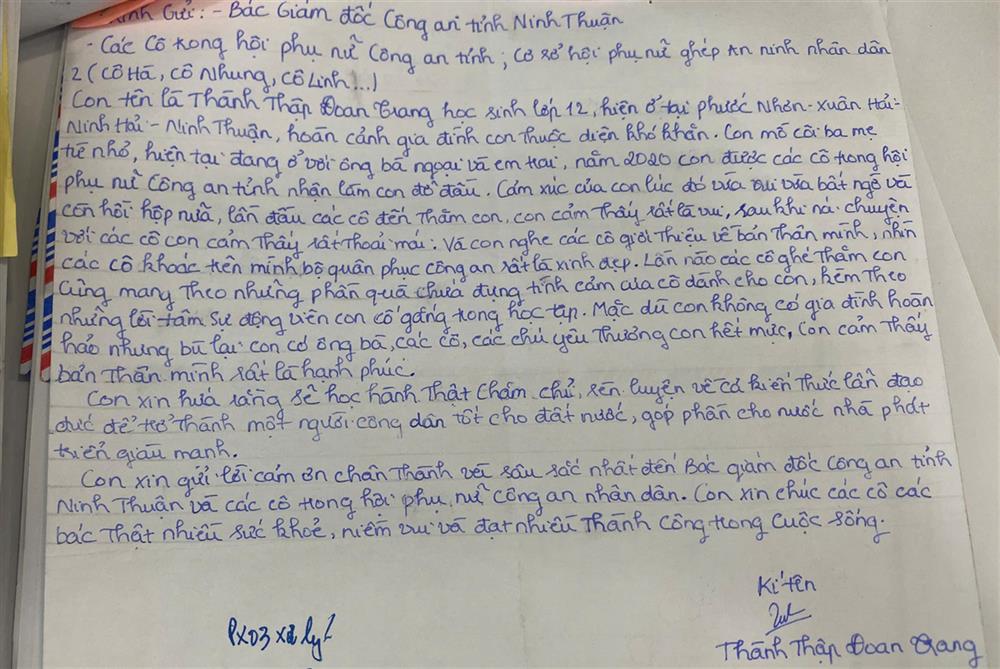 Kính Gửi: - Bác Giám đốc Công an tỉnh Ninh Thuận
- Các cô trong hội phụ nữ Công an tỉnh; Cơ sở hội phụ nữ ghép An ninh nhân dân
2 (Cô Hà, cô Nhung, cô Linh...)
Con tên là Thành Thập Đoan Trang học sinh lớp 12, hiện ở tại phước Nhơn - Xuân Hải -
Ninh Hải - Ninh Thuận, hoàn cảnh gia đình con thuộc diện khó khăn. Con mồ côi ba mẹ
từ nhỏ, hiện tại đang ở với ông bà ngoại và em trai, năm 2020 con được các cô trong hội
phụ nữ Công an tỉnh nhận làm con đỡ đầu. Cảm xúc của con lúc đó vừa vui vừa bất ngờ và
còn hồi hộp nữa, lần đầu các cô đến thăm con, con cảm thấy rất là vui, sau khi nói chuyện
với các cô con cảm thấy rất thoải mái. Và con nghe các cô giới thiệu về bản thân mình, nhìn
các cô khoác trên mình bộ quân phục công an rất là xinh đẹp. Lần nào các cô ghé thăm con
cũng mang theo những phần quà chứa đựng tình cảm của cô dành cho con, kèm theo
những lời tâm sự động viên con cố gắng trong học tập. Mặc dù con không có gia đình hoàn
hảo nhưng bù lại con có ông bà, các cô, các chú yêu thương con hết mực, Con cảm thấy
bản thân mình rất là hạnh phúc.
Con xin hứa rằng sẽ học hành thật chăm chỉ, rèn luyện về cả kiến thức lẫn đạo
đức để trở thành một người công dân tốt cho đất nước, góp phần cho nước nhà phát
triển giàu mạnh.
Con xin gửi lời cảm ơn chân thành và sâu sắc nhất đến Bác giám đốc Công an tỉnh
Ninh Thuận và các cô trong hội phụ nữ công an nhân dân. Con xin chúc các cô các
bác thật nhiều sức khoẻ, niềm vui và đạt nhiều thành công trong cuộc sống.
Kí tên
PX03 xử lý
Thành Thập Đoan Trang